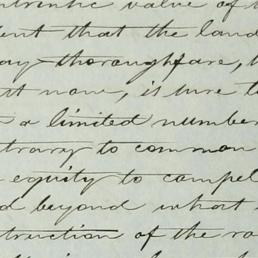 intrinsic value of t
ent that the land
ay thoroughfare, t
ut now, is sure t
a limited number
trary to common
equity to compel
d beyond what
truction of the ro